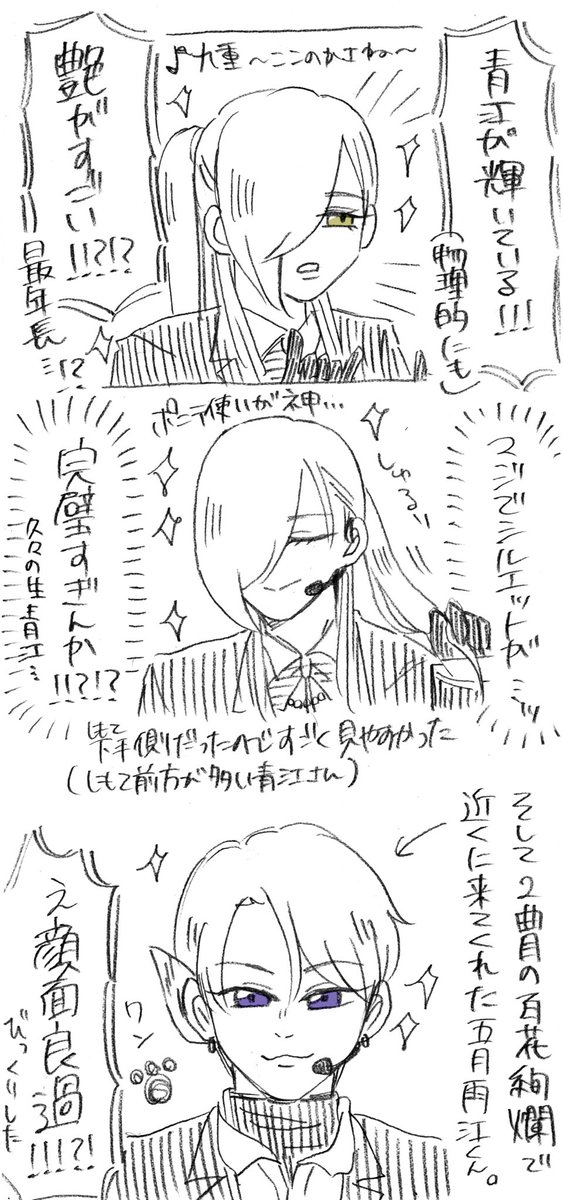 ♪九重 〜ここのかさね〜
青江が輝いている!!!
(物理的にも)
艶がすごい!!?!?
最年長ミ!?
ポニテ使いが神…
スジでシルエットがミッ
しゅるっ
完璧すぎんか!!?!?
久々の生青江ミ
下手側だったのですごく見やすかった
(しもて前方が多い青江さん)
そして2曲目の百花絢爛で
近くに来てくれた五月雨江くん。
え顔面良過ぎる!!!?!
びっくりした
ワン